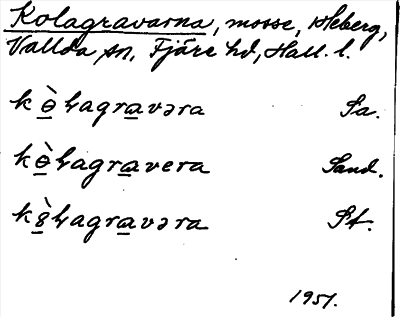 Kolagravarna, mosse, Heberg,
Vallda sn, Fjäre hd, Hall. l.
kɵ̠̀ⱡagra̠vəra Sa.
kɵ̠̀ⱡagra̠vera Sand.
k8̠̀ⱡagra̠vəra St.
1951.